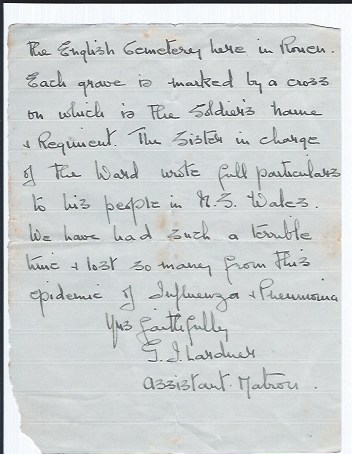 the English Cemetery here in Rouen.
Each grave is marked by a cross
on which is the Soldier's name
& Regiment. The Sister in charge
of the Ward wrote full particulars
to his people in N.S. Wales.
We have had such a terrible
time & lost so many from this
epidemic of Influenza & Pneumonia
Yrs faithfully
G. I. Lardner
Assistant Matron.